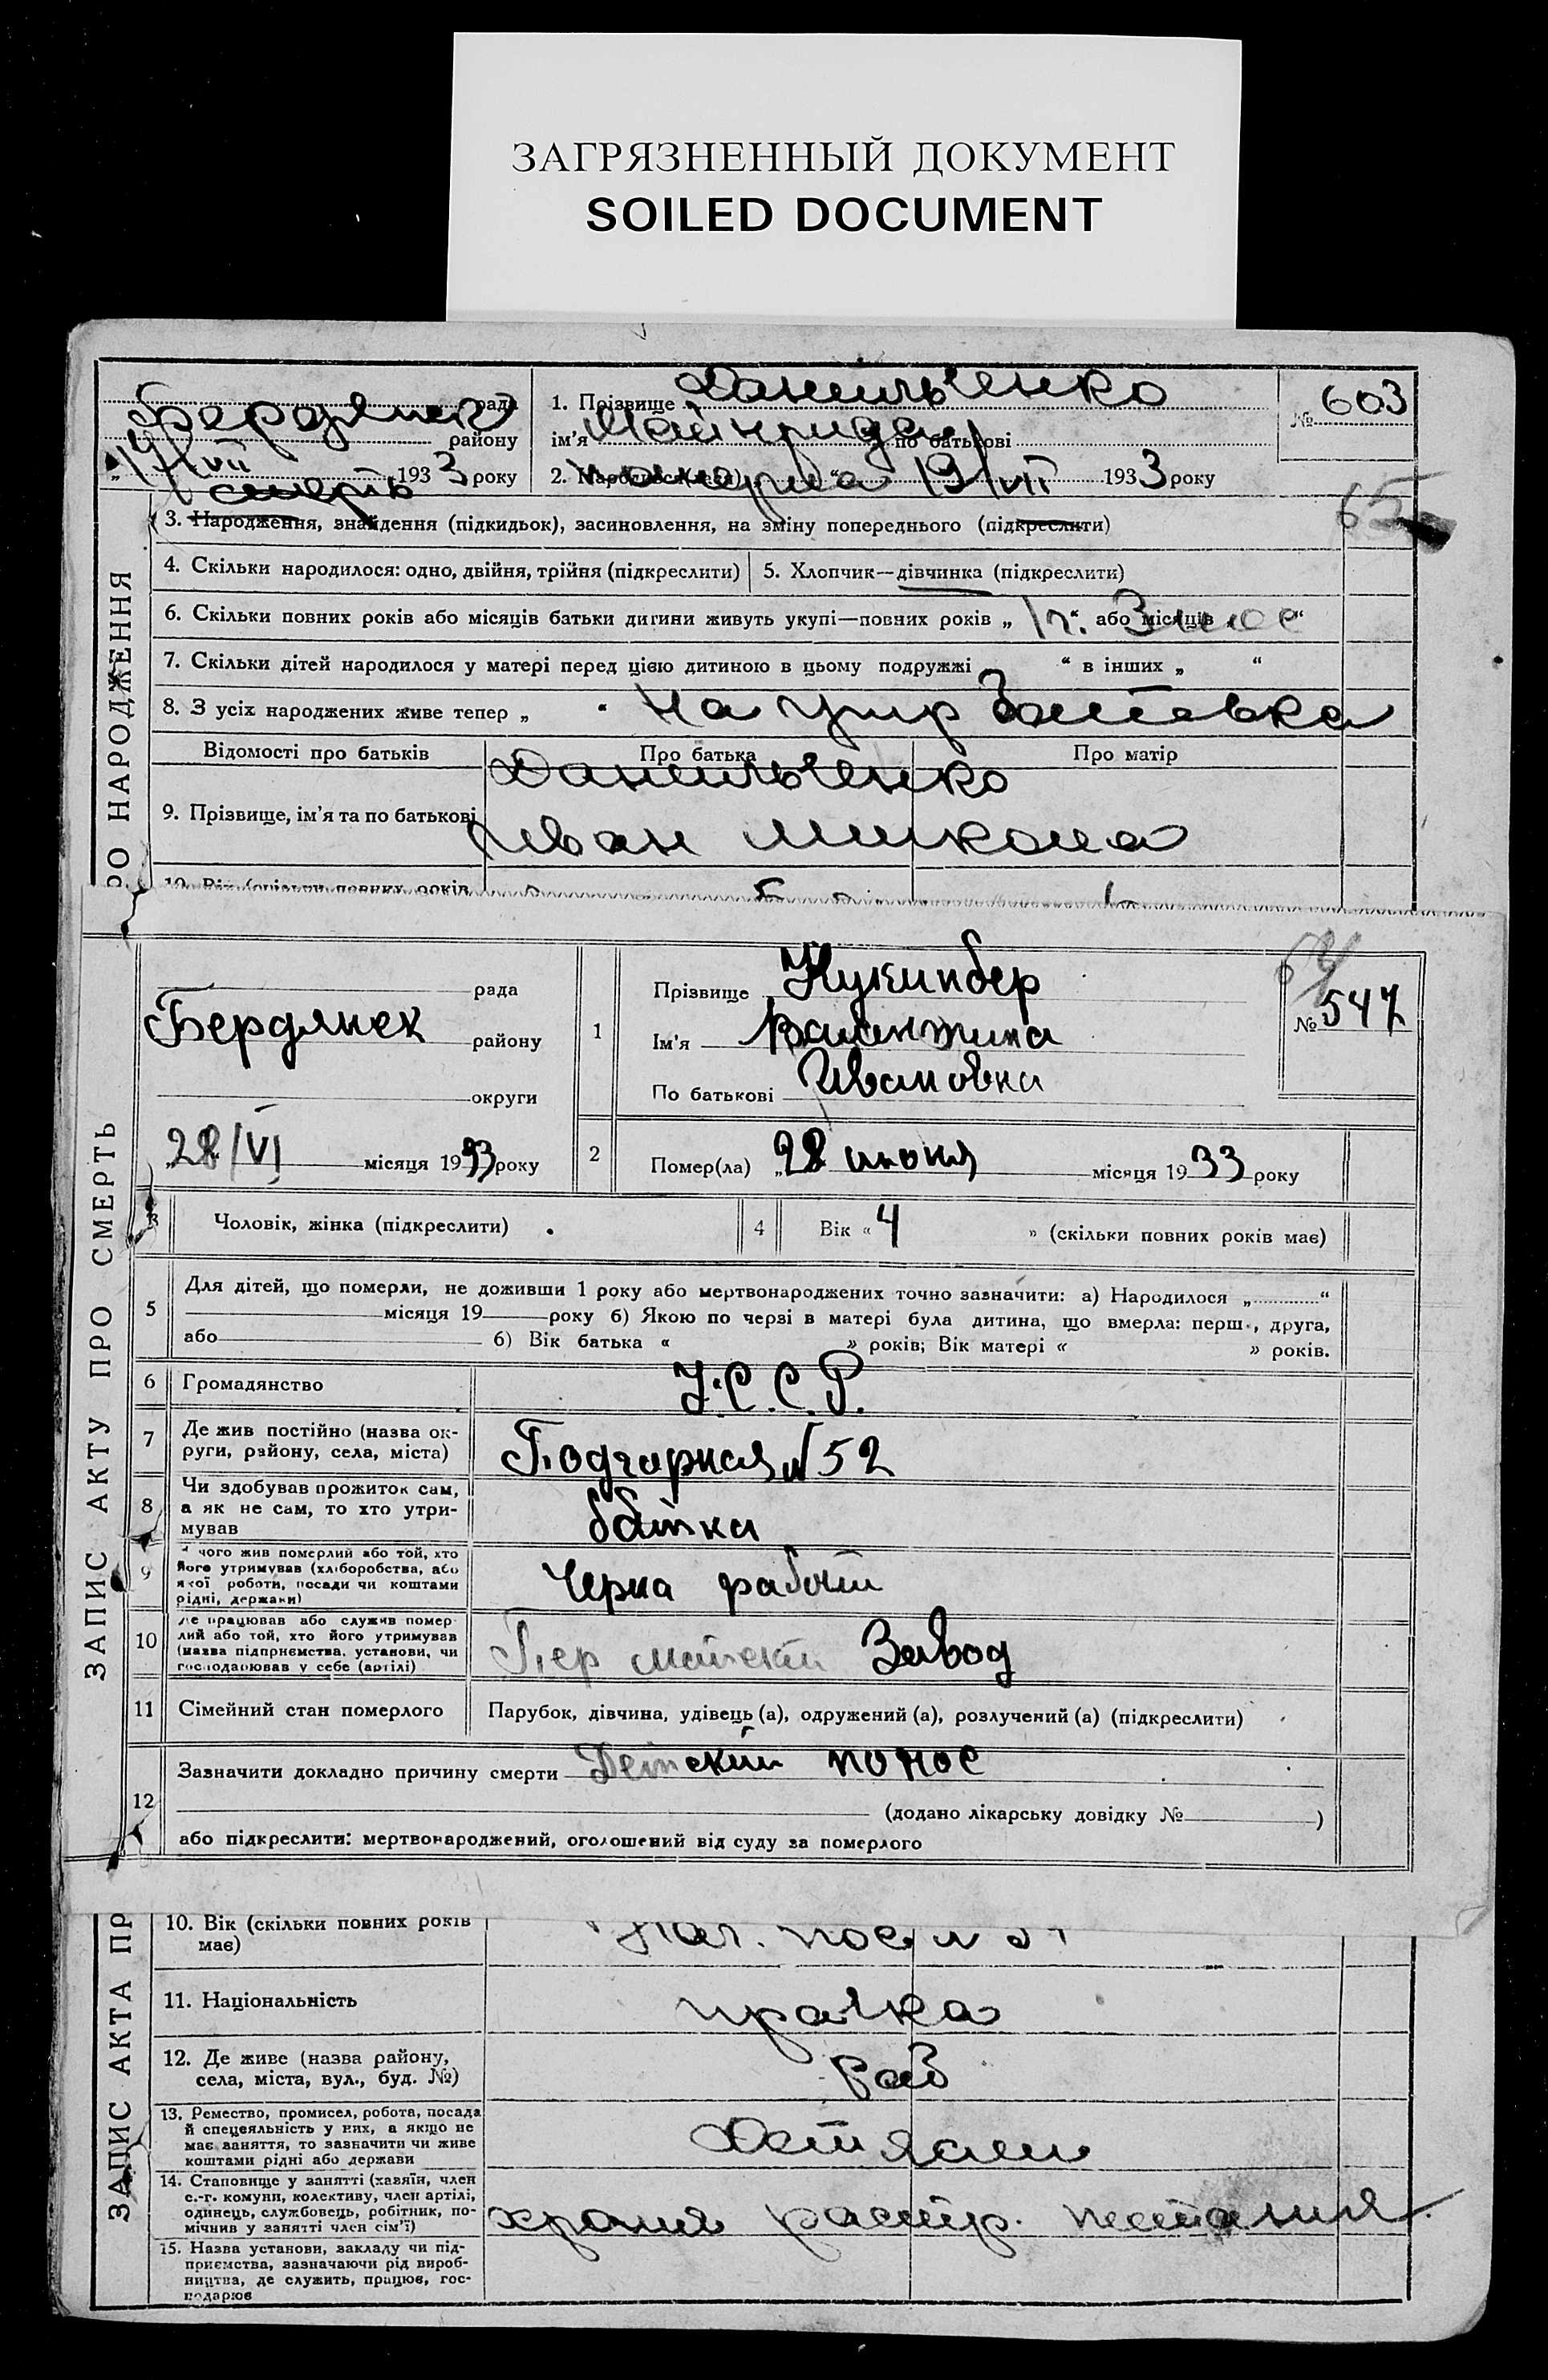 ЗАГРЯЗНЕННЫЙ ДОКУМЕНТ
SOILED DOCUMENT
рада
Бердянск
району
19/VII 1933 року
смерть
1. Прізвище Данильченко
ім'я по батькові
2. Народився(лася) умерла 19/VII 1933 року
№ 603
65
3. Народження, знайдення (підкидьок), засиновлення, на зміну попереднього (підкреслити)
4. Скільки народилося: одно, двійня, трійня (підкреслити)
5. Хлопчик—дівчинка (підкреслити)
6. Скільки повних років або місяців батьки дитини живуть укупі—повних років „ 1 г. “ або місяців „ 3 мес “
7. Скільки дітей народилося у матері перед цією дитиною в цьому подружжі „ “ в інших „ “
8. З усіх народжених живе тепер „ “ на
Відомості про батьків
Про батька
Про матір
9. Прізвище, ім'я та по батькові
Данильченко
Иван
РО НАРОДЖЕННЯ
10. Вік (скільки повних років
ЗАПИС АКТУ ПРО СМЕРТЬ
рада
Бердянск району
округи
28/VI місяця 1933 року
1
Прізвище
Ім'я Валентина
По батькові Ивановна
№ 547
2
Помер(ла) „28 июня місяця 1933 року
3
Чоловік, жінка (підкреслити)
4
Вік « 4 » (скільки повних років має)
5
Для дітей, що померли, не доживши 1 року або мертвонароджених точно зазначити: а) Народилося „ “
місяця 19 року б) Якою по черзі в матері була дитина, що вмерла: перша, друга,
або б) Вік батька « » років; Вік матері « » років.
6
Громадянство
У.С.С.Р.
7
Де жив постійно (назва ок-
руги, району, села, міста)
Подгорная № 52
8
Чи здобував прожиток сам,
а як не сам, то хто утри-
мував
батька
9
З чого жив померлий або той, хто
його утримував (хліборобства, або
якої роботи, посади чи коштами
рідні, держави)
Черна работ
10
Де працював або служив помер
лий або той, хто його утримував
(назва підприємства, установи, чи
господарював у себе (артілі)
Завод
11
Сімейний стан померлого
Парубок, дівчина, удівець (а), одружений (а), розлучений (а) (підкреслити)
12
Зазначити докладно причину смерти Детский понос
(додано лікарську довідку № )
або підкреслити: мертвонароджений, оголошений від суду за померлого
ЗАПИС АКТА ПР
10. Вік (скільки повних років
має)
11. Національність
прачка
12. Де живе (назва району,
села, міста, вул., буд. №)
раб
13. Ремество, промисел, робота, посада
й спеціяльність у них, а якщо не
має заняття, то зазначити чи живе
коштами рідні або держави
Дет ясли
14. Становище у занятті (хазяїн, член
с.-г. комуни, колективу, член артілі,
одинець, службовець, робітник, по-
мічнив у занятті член сім'ї)
хрония растр. питания
15. Назва установи, закладу чи під-
приємства, зазначаючи рід вироб-
ництва, де служить, працює, гос-
подарює